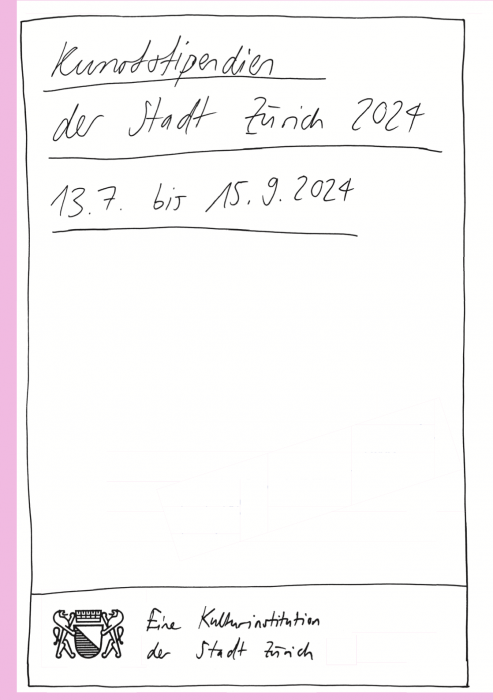 Kunststipendien
der Stadt Zürich 2024
13.7. bis 15.9.2024
Eine Kulturinstitution
der Stadt Zürich